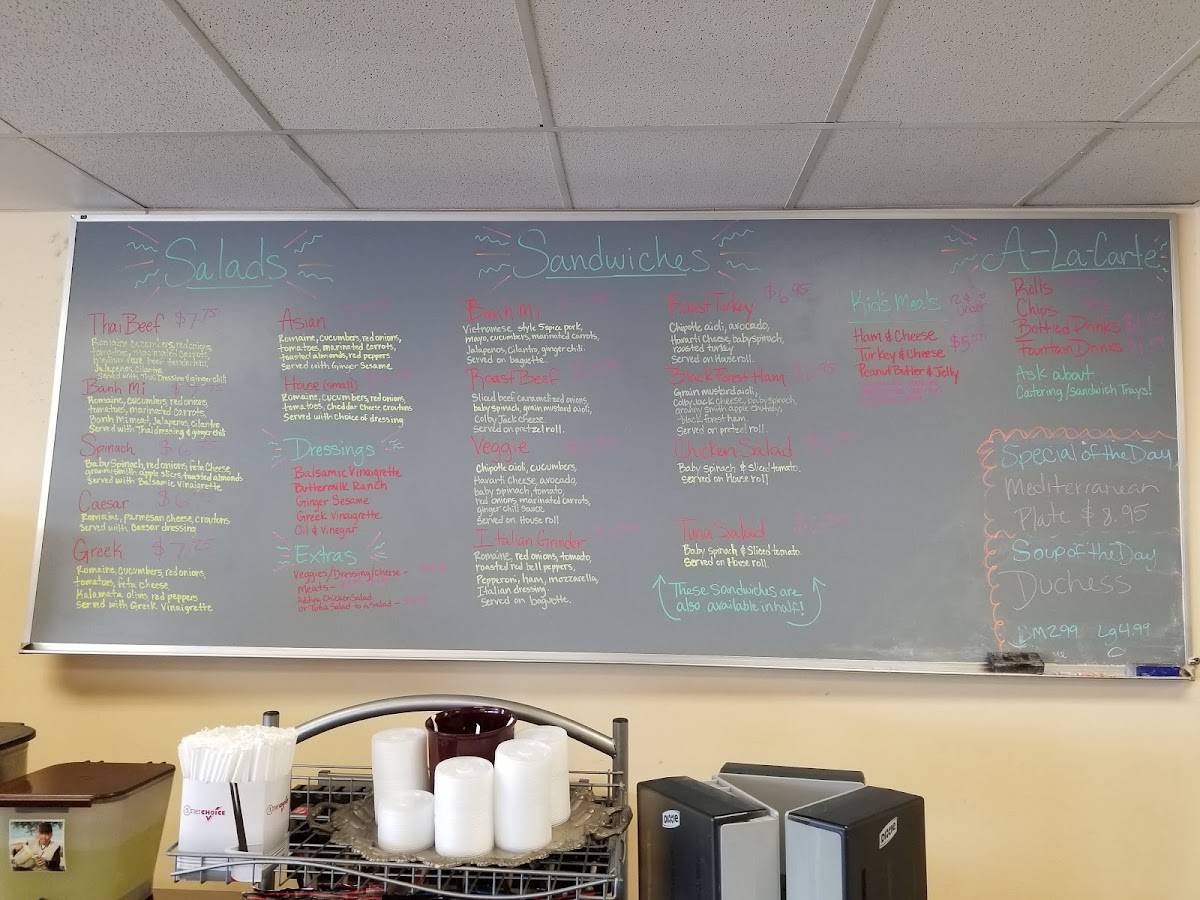 Salads
Thai Beef $7.75
Romaine, cucumbers, red onions,
tomatoes, marinated carrots,
Jalapeños, Cilantro
Served with Thai Dressing & ginger chili
Banh Mi
Romaine, cucumbers, red onions,
tomatoes, marinated carrots,
Banh Mi meat, Jalapeños, Cilantro
Served with Thai dressing & ginger chili
Spinach
Baby Spinach, red onions, feta cheese
granny smith apple slices, toasted almonds
served with Balsamic Vinaigrette
Caesar
Romaine, parmesan cheese, croutons
Served with Caesar dressing
Greek $7.25
Romaine, cucumbers, red onions,
tomatoes, feta cheese
Kalamata olives, red peppers
Served with Greek Vinaigrette
Asian
Romaine, cucumbers, red onions,
tomatoes, marinated carrots,
toasted almonds, red peppers.
Served with Ginger Sesame
House (small)
Romaine, cucumbers, red onions,
tomatoes, cheddar cheese, croutons
Served with choice of dressing
Dressings
Balsamic Vinaigrette
Buttermilk Ranch
Ginger Sesame
Greek Vinaigrette
Oil & Vinegar
Extras
Veggies/Dressing/Cheese -
Meats -
Adding Chicken Salad
or Tuna Salad to a Salad -
Sandwiches
Banh Mi
Vietnamese style 5 spice pork,
mayo, cucumbers, marinated carrots,
Jalapeños, Cilantro, ginger chili.
Served on baguette.
Roast Beef
Sliced beef, caramelized onions,
baby spinach, grain mustard aioli,
Colby Jack cheese
Served on pretzel roll.
Veggie
Chipotle aioli, cucumbers,
Havarti Cheese, avocado,
baby spinach, tomato,
red onions, marinated carrots,
ginger chili sauce
Served on House roll
Italian Grinder
Romaine, red onions, tomato,
roasted red bell peppers,
Pepperoni, ham, mozzarella,
Italian dressing.
Served on baguette.
Roast Turkey $6.95
Chipotle aioli, avocado,
Havarti Cheese, baby spinach,
roasted turkey
Served on House roll.
Black Forest Ham
Grain mustard aioli,
Colby Jack cheese, baby spinach,
granny smith apple chutney,
black forest ham
Served on pretzel roll.
Chicken Salad
Baby spinach & sliced tomato.
Served on House roll
Tuna Salad
Baby spinach & Sliced tomato
Served on House roll
These Sandwiches are
also available in half!
Kid's Meals
Ham & Cheese
Turkey & Cheese
Peanut Butter & Jelly
A-La-Carte
Rolls
Chips
Bottled Drinks
Fountain Drinks
Ask about
Catering/Sandwich Trays!
Special of the Day
Mediterranean
Plate $8.95
Soup of the Day
Duchess
SM 2.99 Lg 4.99
CHOICE
DIXIE
DIXIE